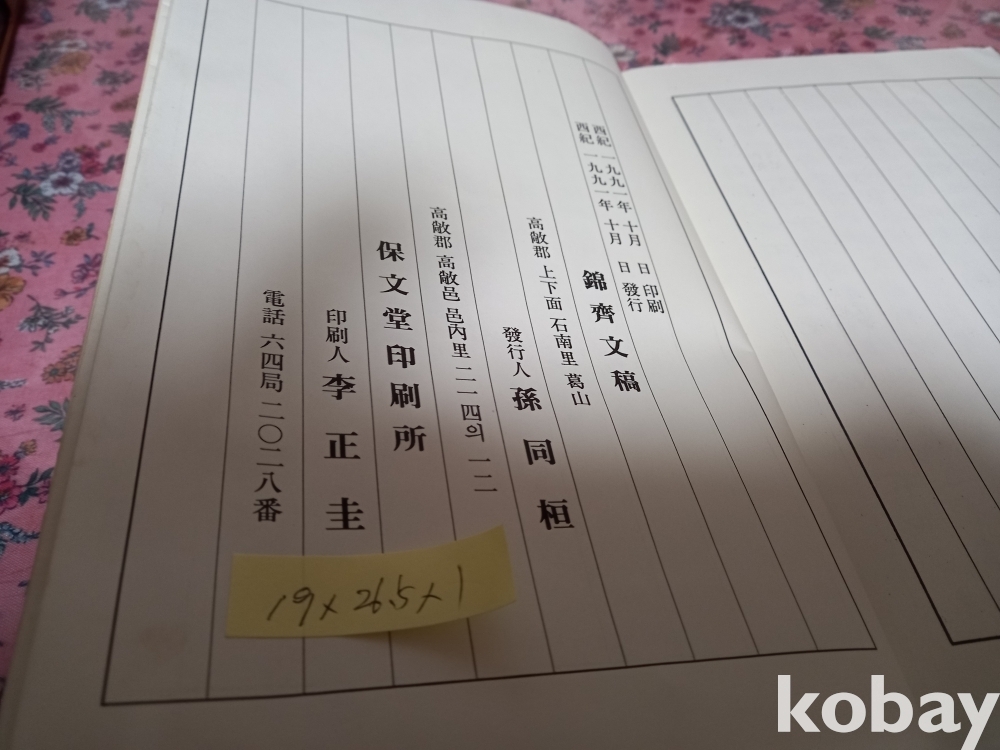 西紀 一九九一年 十月 日 印刷
西紀 一九九一年 十月 日 發行
錦齊文稿
高敞郡 上下面 石南里 葛山
發行人 孫同桓
高敞郡 高敞邑 邑內里 二一四의 一二
保文堂印刷所
印刷人 李正圭
電話 六四局 二〇二八番
19 x 26.5 x 1
kobay